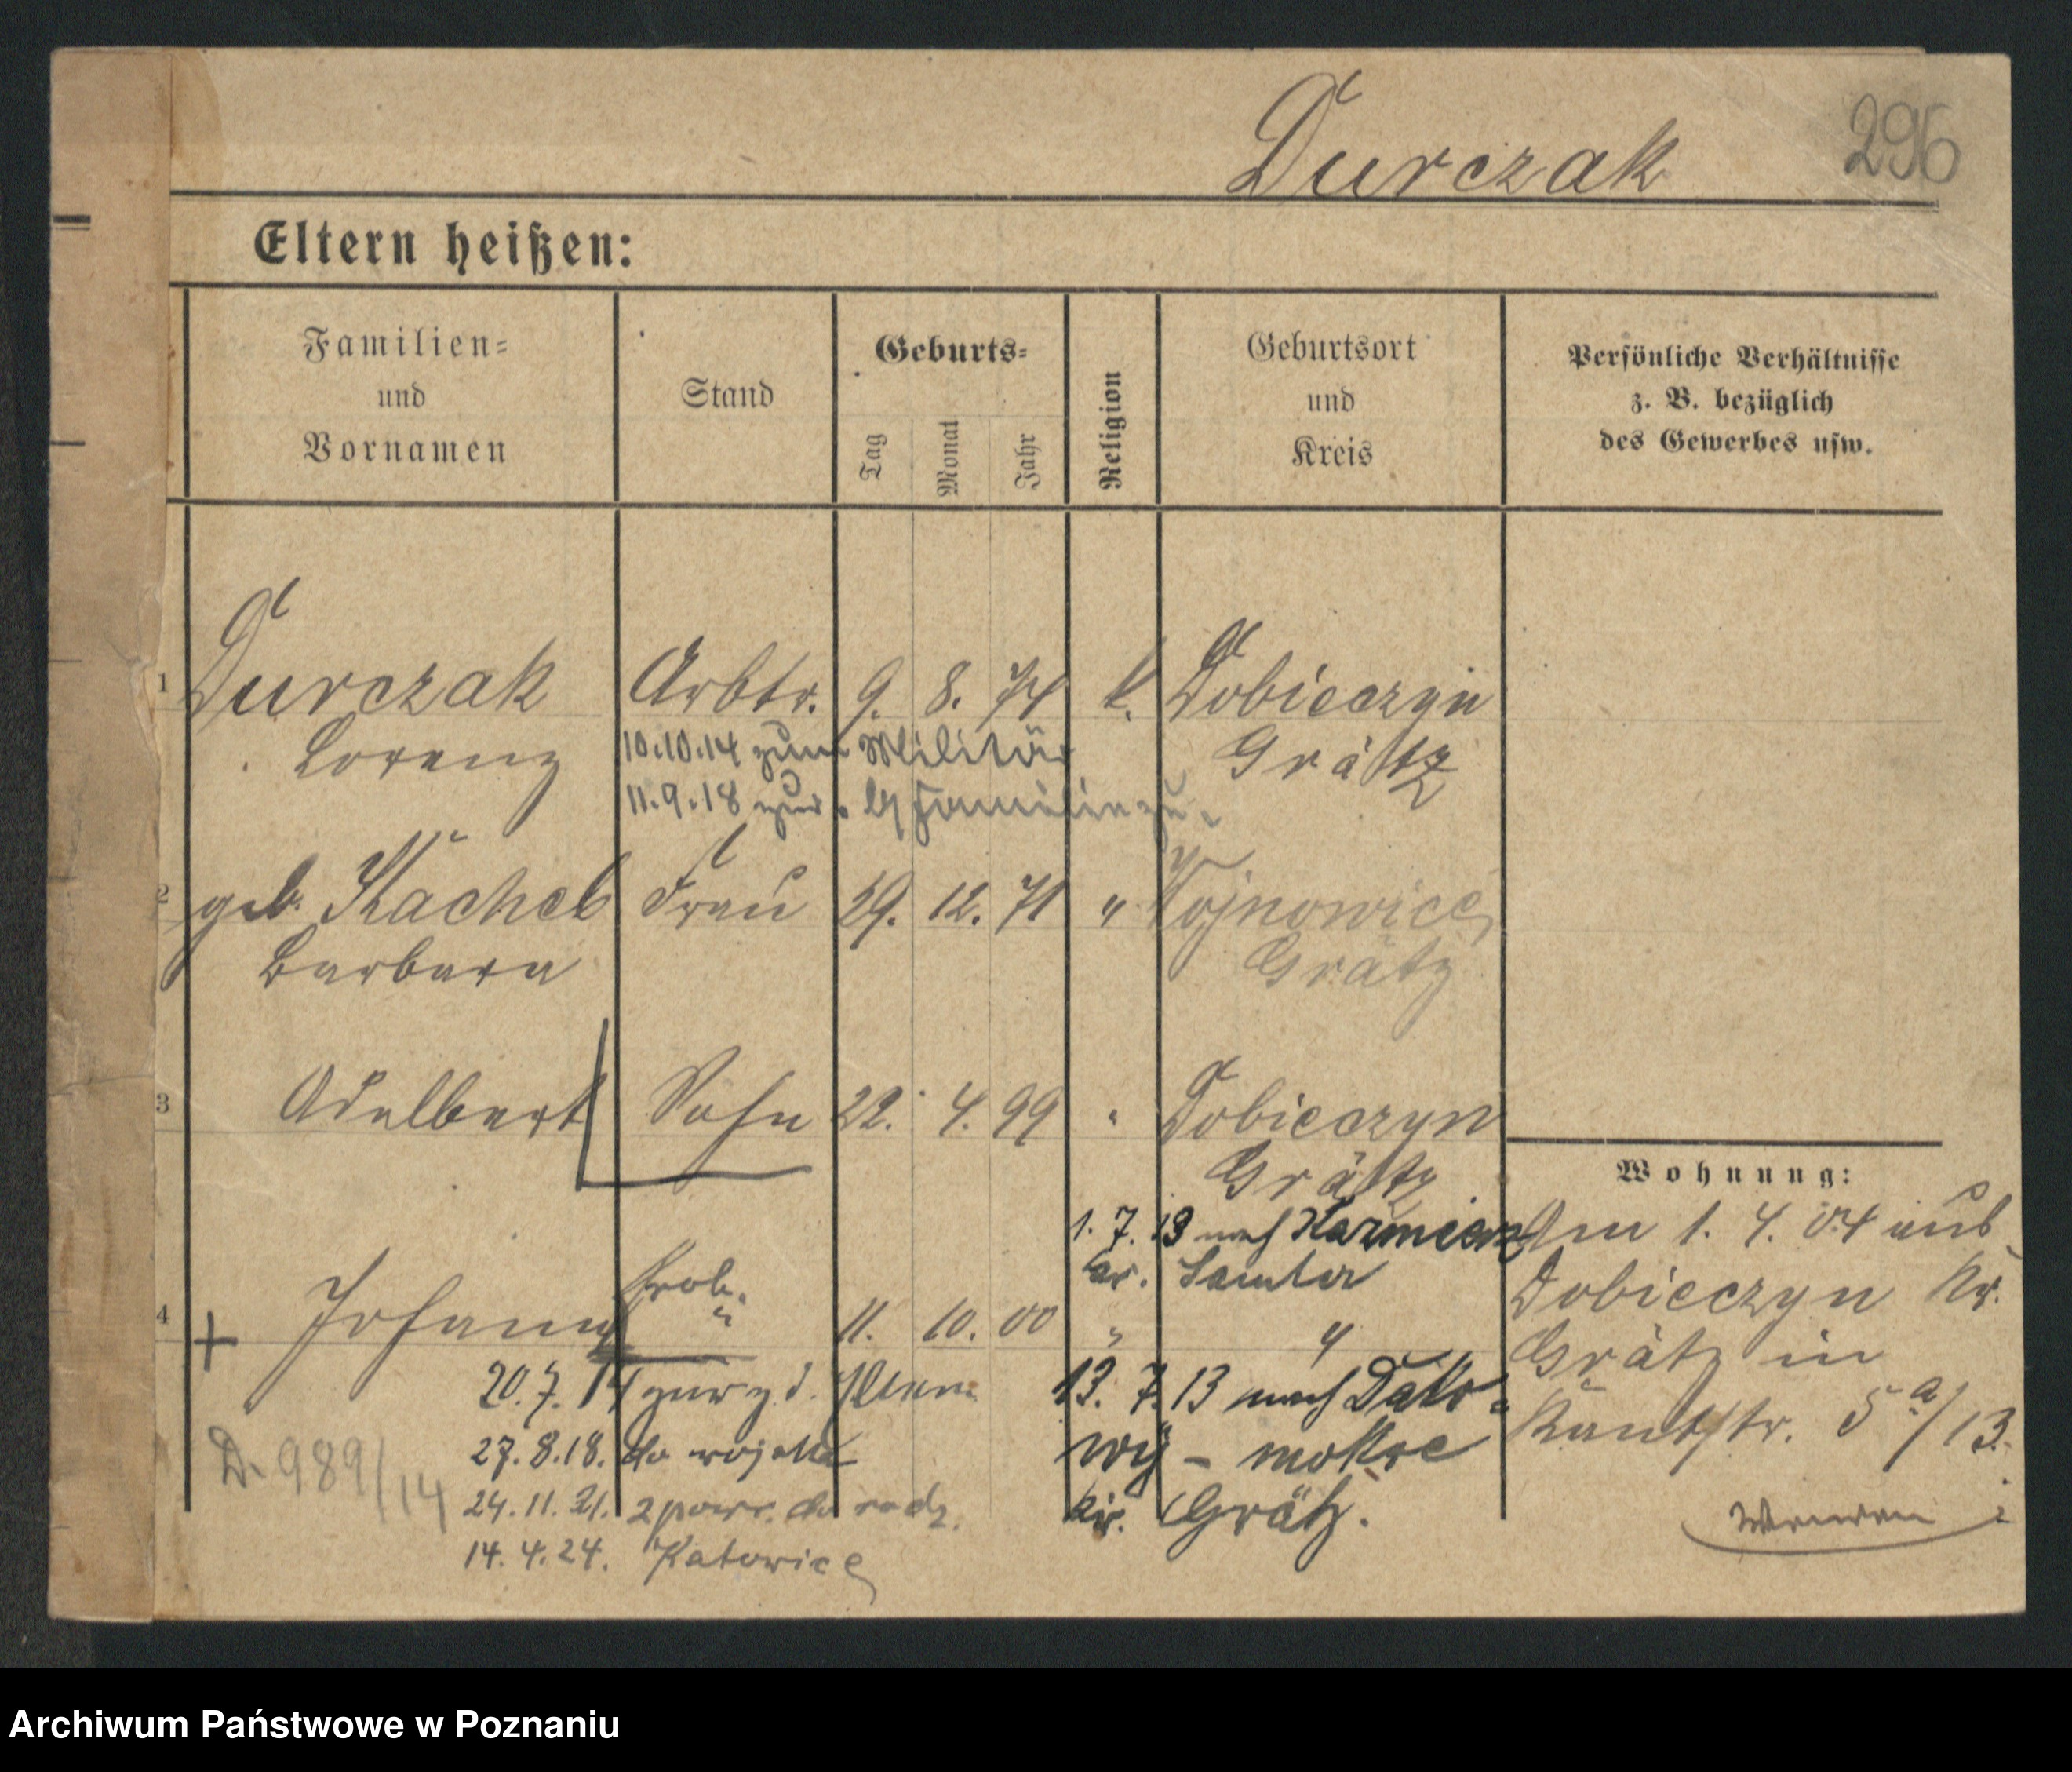 Durczak 296
Eltern heißen:
Familien=
und
Vornamen
Stand
Geburts=
Tag Monat Jahr
Religion
Geburtsort
und
Kreis
Persönliche Verhältnisse
z. B. bezüglich
des Gewerbes usw.
1 Durczak Arbtr. 9. 8. 74 k. Dobieczyn
Lorenz 10.10.14 zum Militär Grätz
11.9.18 zur Familie zu.
2 geb. Kachel Frau 29. 12. 71 " Wojnowice
Barbara Grätz
3 Adelbert Sohn 22. 4. 99 " Dobieczyn
Grätz
Wohnung:
1. 7. 13 nach Kazmierz
Kr. Samter
Am 1. 4. 04 aus
Dobieczyn Kr.
Grätz in
Kantstr. 5a/13.
4 + Johann " 11. 10. 00 " "
20.7.14 zur. z. d. Eltern
13. 7. 13 nach Dako=
wy - mokre
Kr. Grätz.
D. 989/14
27.8.18. do wojska
24.11.21. z powr. do rodz.
14.4.24. Katowice
Archiwum Państwowe w Poznaniu